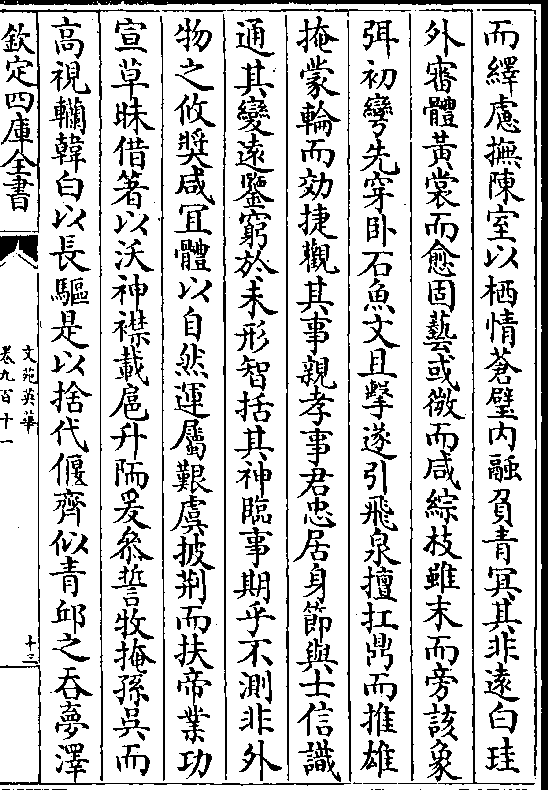 而繹慮撫陳室以栖情蒼璧内融負青冥其非遠白珪
外審體黃裳而愈固藝或微而咸綜枝雖末而旁該象
弭初彎先穿卧石魚文且擊遂引飛泉擅扛鼎而推雄
掩蒙輪而効捷觀其事親孝事君忠居身節與士信識
通其變遠鑒窮於未形智括其神臨事期乎不測非外
物之攸奬咸冝體以自然運屬艱虞披荆而扶帝業功
宣草昧借箸以沃神襟載扈升陑爰叅誓牧掩孫吳而
高視轥韓白以長驅是以捨代偃齊似青邱之吞夢澤
欽定四庫全書
文苑英華
卷九百十一
十三